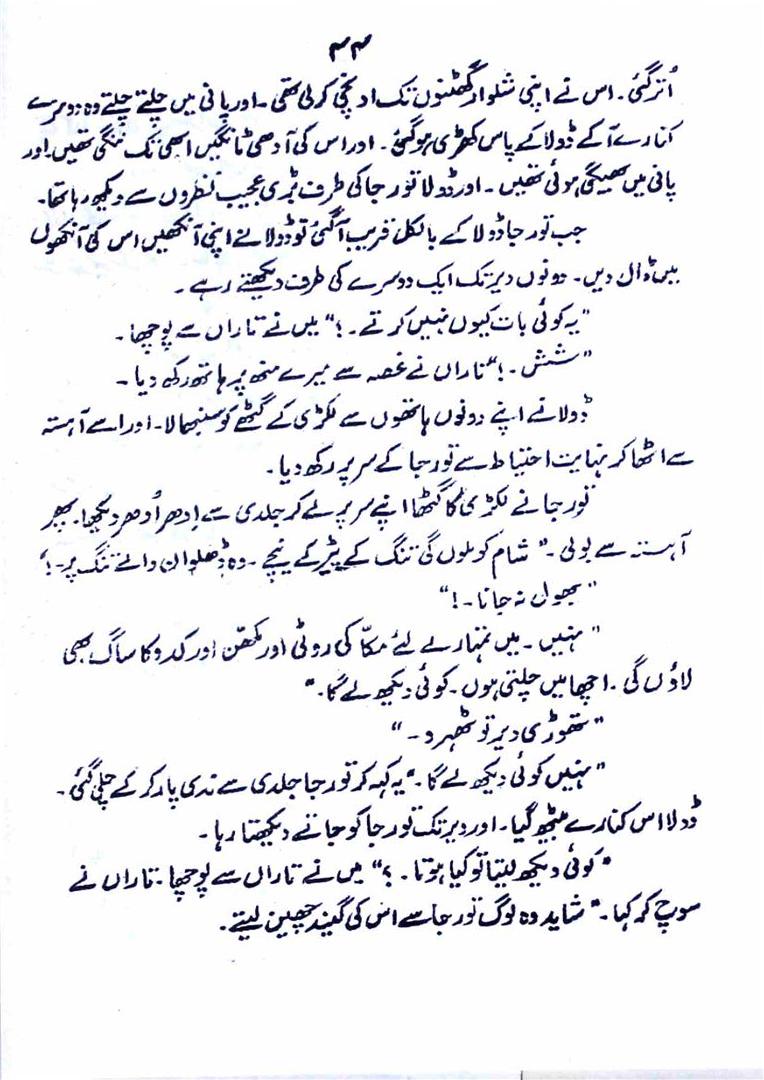 ۴۴
اُتر گئی۔ اس نے اپنی شلوار گھٹنوں تک اونچی کر لی تھی۔ اور پانی میں چلتے چلتے وہ دوسرے
کنارے آ کے ڈولا کے پاس کھڑی ہو گئی۔ اور اس کی آدھی ٹانگیں ابھی تک ننگی تھیں۔ اور
پانی میں بھیگی ہوئی تھیں۔ اور ڈولا تورجا کی طرف بڑی عجیب نظروں سے دیکھ رہا تھا۔
جب تورجا ڈولا کے بالکل قریب آگئی تو ڈولا نے اپنی آنکھیں اس کی آنکھوں
میں ڈال دیں۔ دونوں دیر تک ایک دوسرے کی طرف دیکھتے رہے۔
"یہ کوئی بات کیوں نہیں کرتے۔؟" میں نے تاراں سے پوچھا۔
"شش۔!" تاراں نے غصہ سے میرے منھ پر ہاتھ رکھ دیا۔
ڈولا نے اپنے دونوں ہاتھوں سے لکڑی کے گٹھے کو سنبھالا۔ اور اسے آہستہ
سے اٹھا کر نہایت احتیاط سے تورجا کے سر پر رکھ دیا۔
تورجا نے لکڑی کا گٹھا اپنے سر پر لے کر جلدی سے اِدھر اُدھر دیکھا۔ پھر
آہستہ سے بولی۔ "شام کو ملوں گی تنگ کے پیڑ کے نیچے۔ وہ ڈھلوان والے تنگ پر۔!"
"بھول نہ جانا۔!"
"نہیں۔ میں تمہارے لئے مکّا کی روٹی اور مکھّن اور کدو کا ساگ بھی
لاؤں گی۔ اچھا میں چلتی ہوں۔ کوئی دیکھ لے گا۔"
"تھوڑی دیر تو ٹھہرو۔"
"نہیں کوئی دیکھ لے گا۔" یہ کہہ کر تورجا جلدی سے ندی پار کر کے چلی گئی۔
ڈولا اس کنارے بیٹھ گیا۔ اور دیر تک تورجا کو جاتے دیکھتا رہا۔
"کوئی دیکھ لیتا تو کیا ہوتا۔؟" میں نے تاراں سے پوچھا۔ تاراں نے
سوچ کر کہا۔ "شاید وہ لوگ تورجا سے اس کی گیند چھین لیتے۔